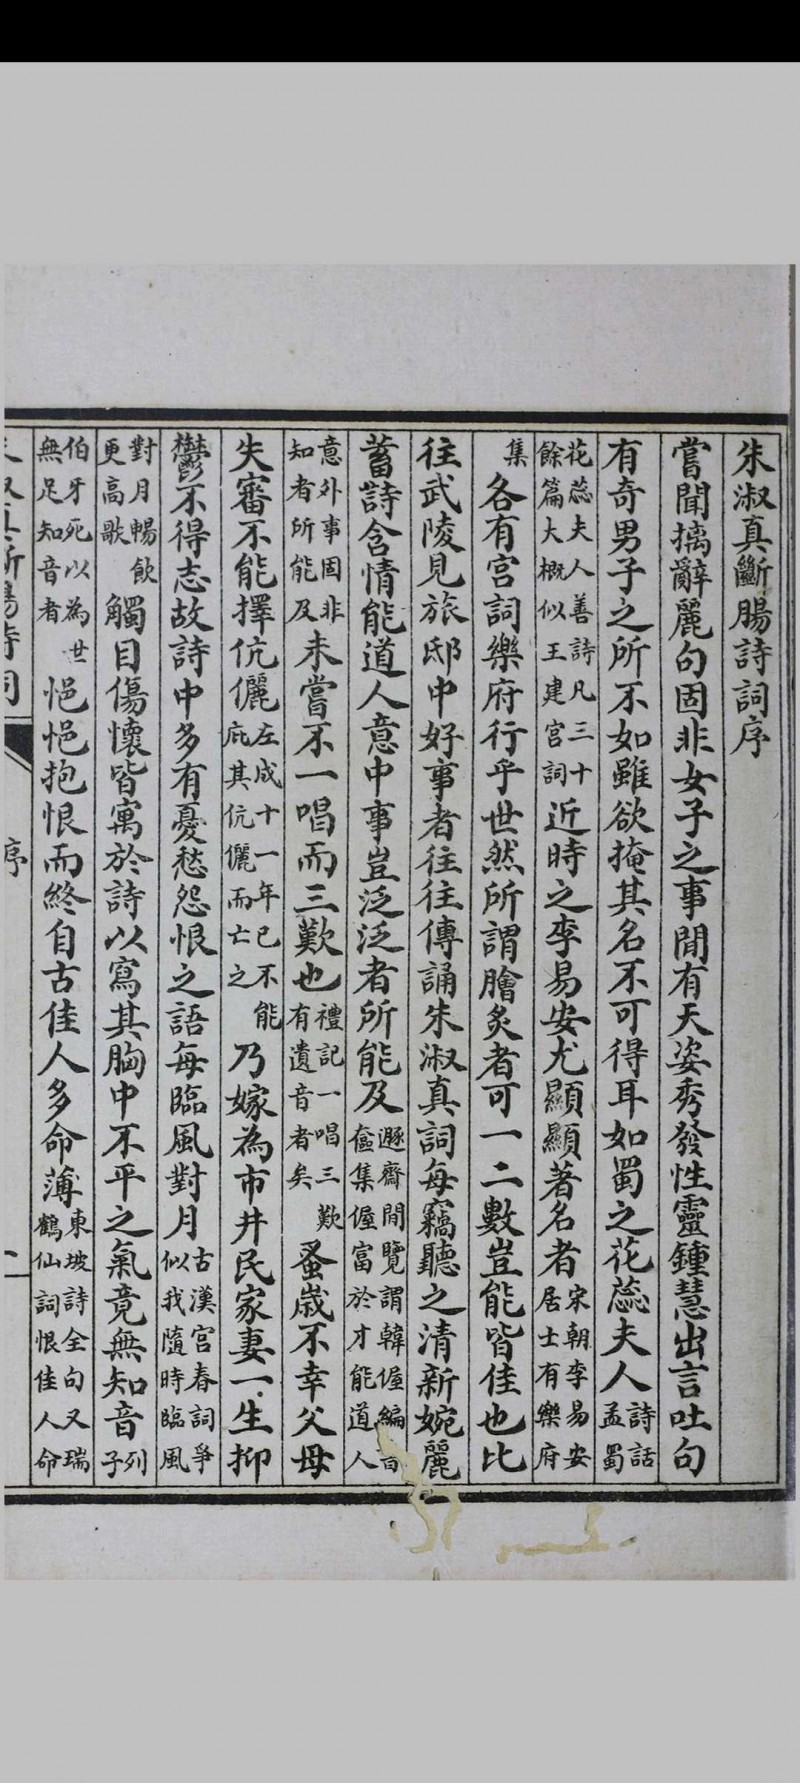 朱淑真斷腸詩詞序
嘗聞摛辭麗句固非女子之事間有天姿秀發性靈鍾慧出言吐句
有奇男子之所不如雖欲掩其名不可得耳如蜀之花蕊夫人詩話孟蜀
花蕊夫人善詩凡三十餘篇大概似王建宮詞近時之李易安尤顯顯著名者宋朝李易安居士有樂府
集各有宮詞樂府行乎世然所謂膾炙者可一二數豈能皆佳也比
往武陵見旅邸中好事者往往傳誦朱淑真詞每竊聽之清新婉麗
蓄詩含情能道人意中事豈泛泛者所能及遯齋閒覽謂韓偓編奩集偓富於才能道人
意外事固非知者所能及未嘗不一唱而三歎也禮記一唱三歎有遺音者矣蚤歲不幸父母
失審不能擇伉儷左成十一年已不能庇其伉儷而亡之乃嫁為市井民家妻一生抑
鬱不得志故詩中多有憂愁怨恨之語每臨風對月古漢宮春詞爭似我隨時臨風
對月暢飲更高歌觸目傷懷皆寓於詩以寫其胸中不平之氣竟無知音列子
伯牙死以為世無足知音者悒悒抱恨而終自古佳人多命薄東坡詩全句又瑞鶴仙詞恨佳人命
朱淑真斷腸詩詞 序 一